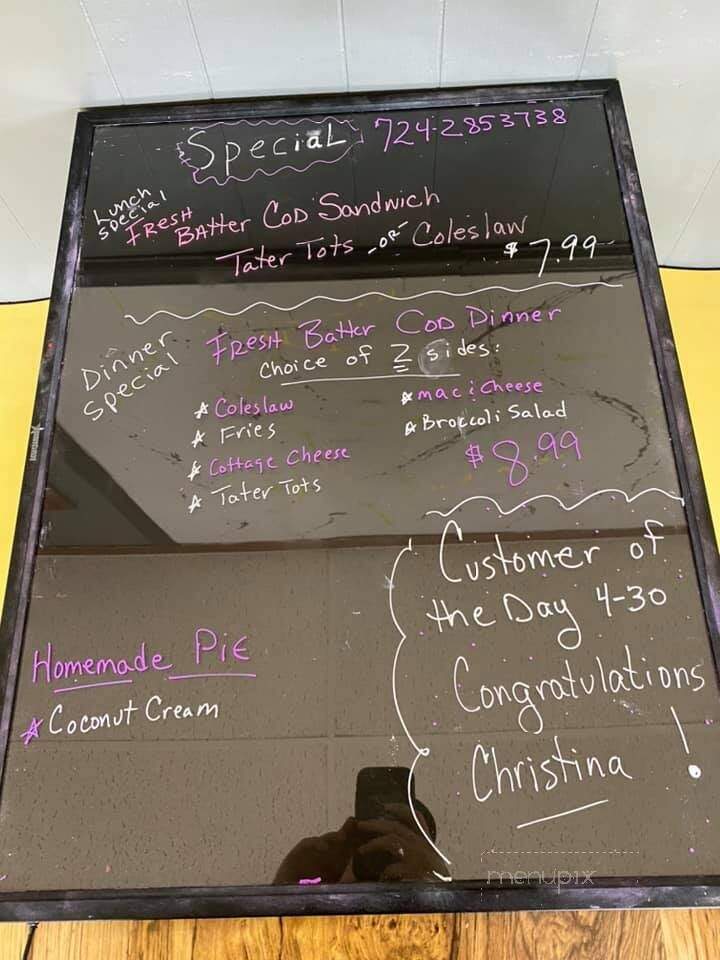 Special 724-2853738
Lunch
Special
Fresh
Batter Cod Sandwich
Tater Tots -or- Coleslaw
$7.99
Dinner
Special
Fresh Batter Cod Dinner
Choice of 2 sides:
* Coleslaw
* Fries
* Cottage Cheese
* Tater Tots
* mac & Cheese
* Broccoli Salad
$8.99
Customer of
the Day 4-30
Congratulations
Christina !
Homemade Pie
* Coconut Cream
menupix